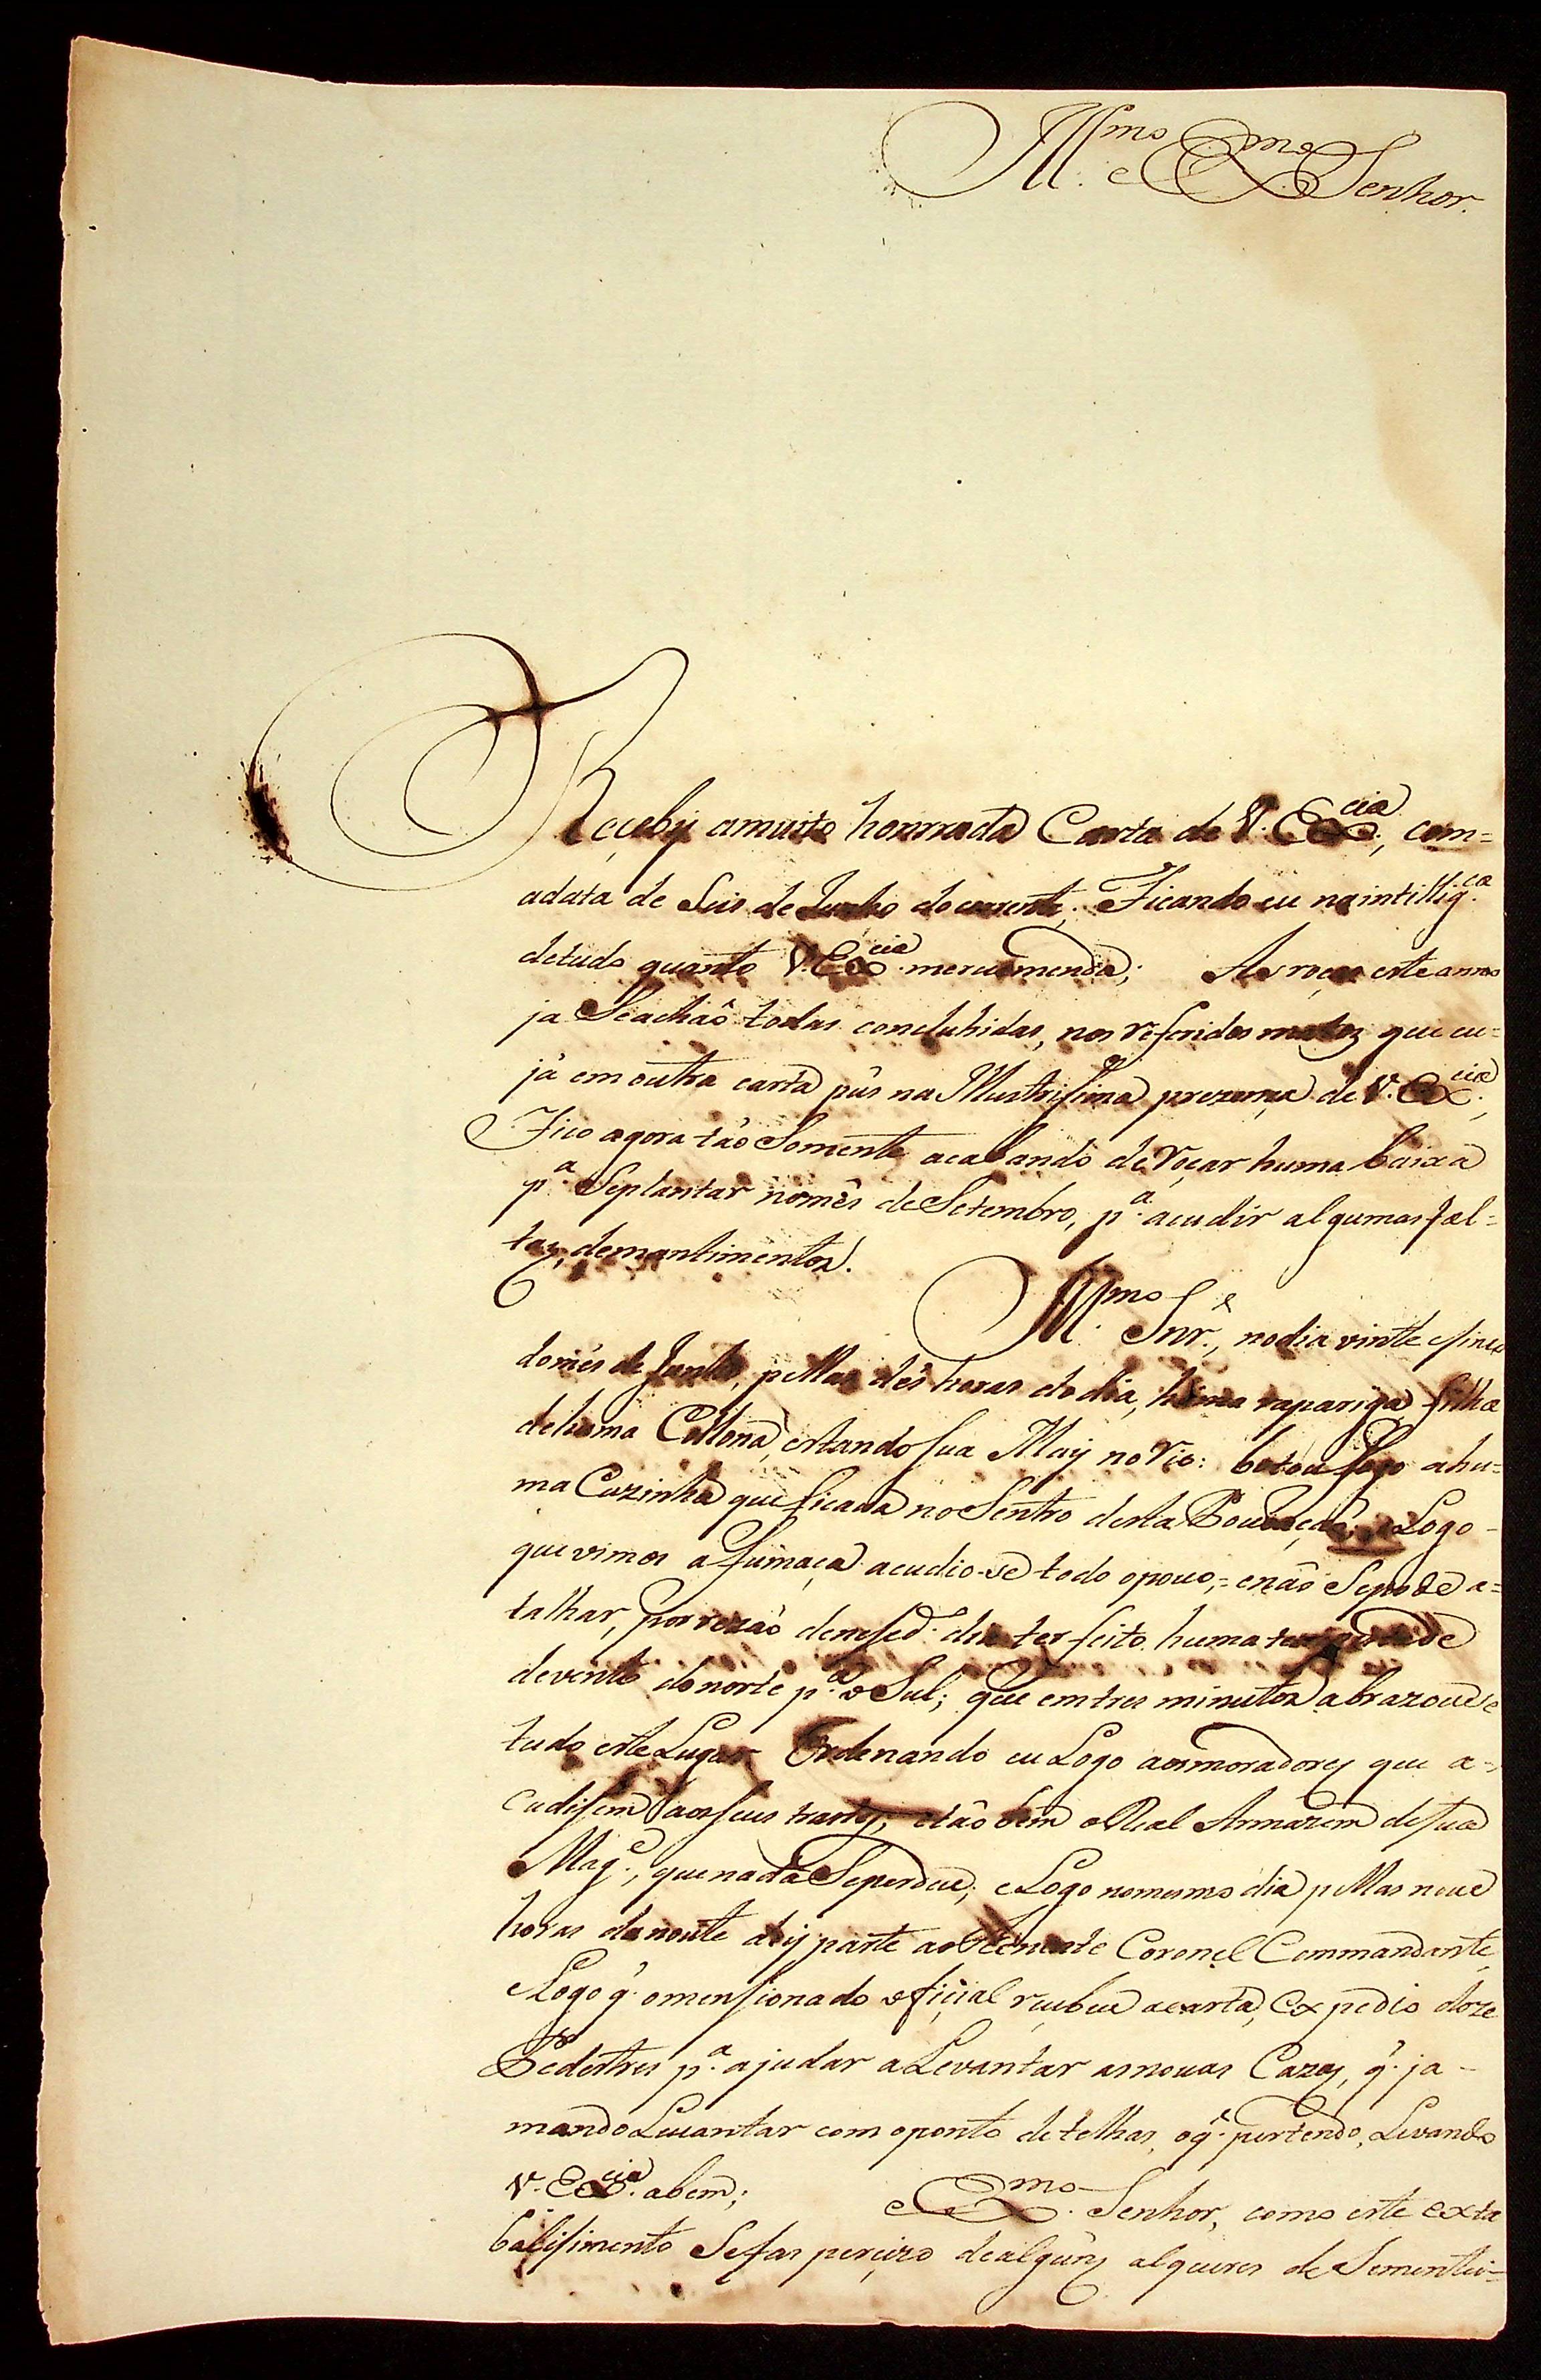 Ill.mo e Ex.mo Senhor.
Reçeby amuito honrrada Carta de V. Ex.cia, com=
adata de Seis de Junho do corrente; Ficando eu na intillig.ca
detudo quanto V. Ex.cia merecomenda; As roças este anno
ja Seachaõ todas concluhidas, nos referidos matos que eu=
já em outra carta pûs na Illustrisima prezença de V. Ex.cia,
Fico agora tão Somente acabando de Roçar huma baixa
p.a Seplantar nomês de Setembro, p.a acudir algumas fal=
tas demantimentos.
Ill.mo Snr., nodia vinte esinco
domês de Junho, pellas dês horas do dia, huma rapariga filha
dehuma Collona, estando sua May no Rio: botou fogo ahu=
ma Cazinha que ficava no Sentro desta Povoação, e Logo
que vimos a fumaça acudio-se todo opovo, enão Sepode a=
talhar, por rezão denesed. dia ter feito huma tempestade
devento donorte p.a o Sul; que emtres minutos abrazouse
tudo este Lugar Ordenando eu Logo aosmoradores que a=
cudisem aosseus trastes, etãobem o Real Armazem desua
Mag.e, que nada Seperdeu; e Logo nomesmo dia pellas nove
horas da noute dey parte ao Tenente Coronel Commandante,
e Logo q. omensionado ofiçial reçebeu acarta, Expedio doze
Pedestres p.a ajudar a Levantar asnovas Cazas, q. ja
mando Levantar com oponto de telhas, oq. pertendo, Levando
V. Ex.cia abem; Ex.mo Senhor, como este exta
balisimento Sefas perçizo dealguns alqueires de Sementei=